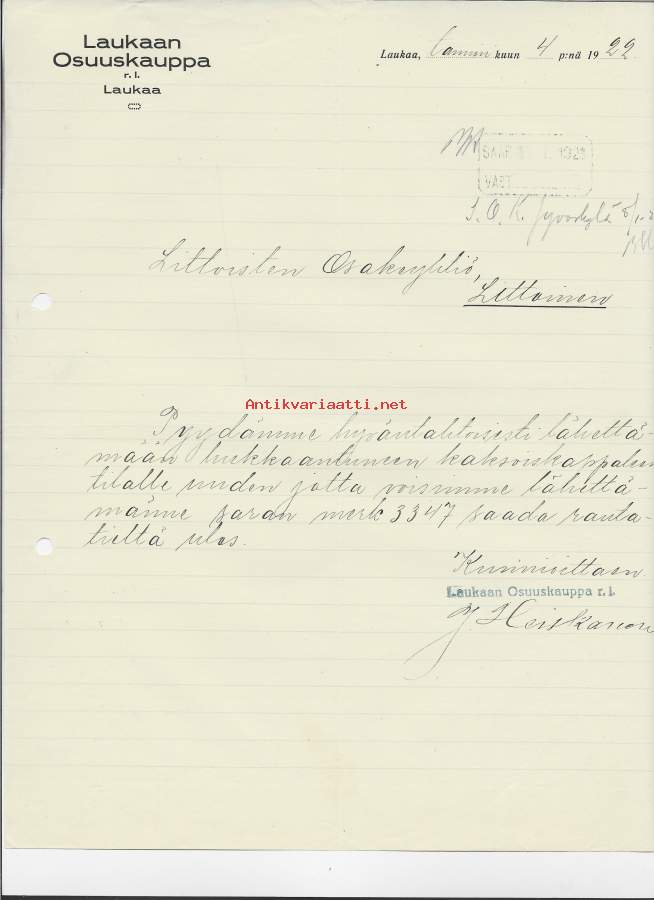 Laukaan
Osuuskauppa
r. l.
Laukaa
Laukaa, tammi kuun 4 p:nä 1922
VAST
S. O. K. Jyväskylä
Littoisten Osakeyhtiö,
Littoinen
Antikvariaatti.net
Pyydämme hyväntahtoisesti lähettä-
mään hukkaantuneen kaksoiskappaleen
tilalle uuden jotta voisimme lähettä-
männe saran merk 3347 saada rauta-
tieltä ulos.
Kunnioittaen
Laukaan Osuuskauppa r. l.
Y Heiskanen